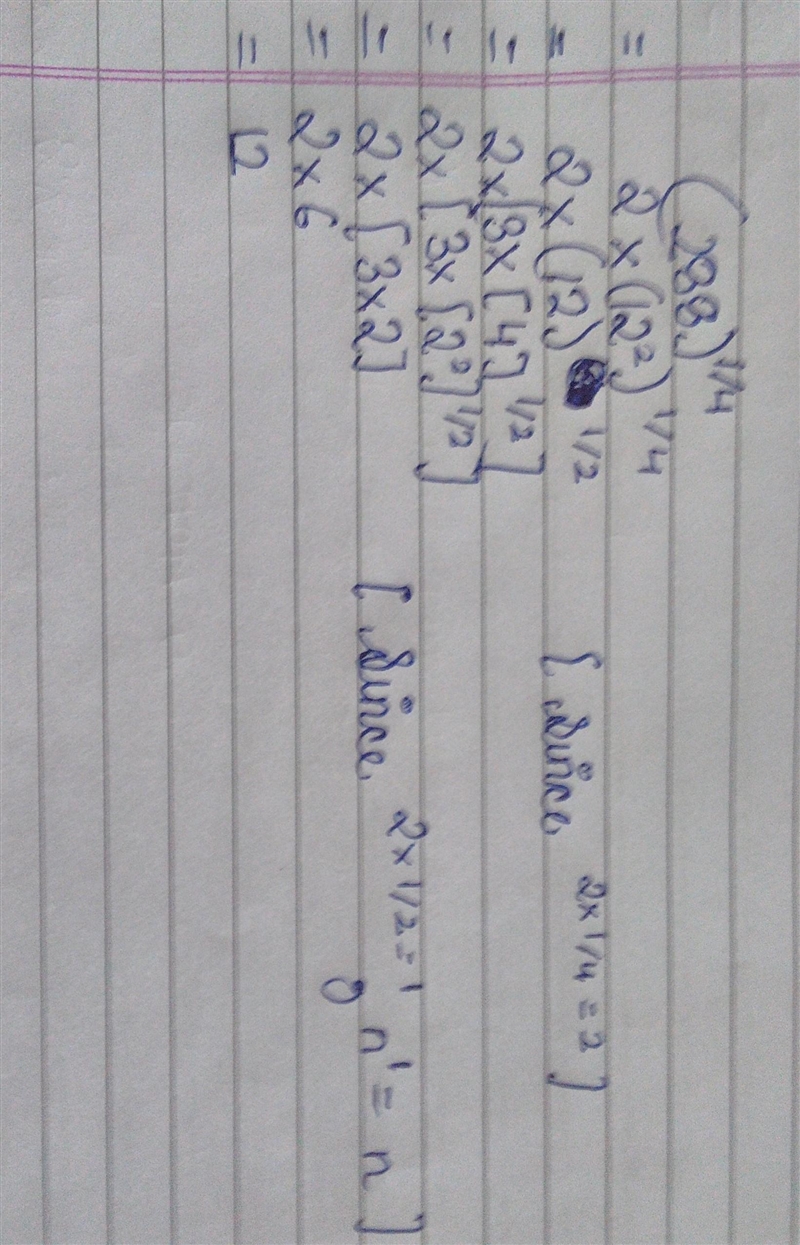 (288)^1/4
= 2 x (12²)^1/4
= 2 x (12)^1/2 [Since 2x1/4 = 2]
= 2x[3x[4]^1/2]
= 2x[3x[2²]^1/2]
= 2x[3x2] [Since 2x1/2=1 n¹= n]
= 2x6
= 12